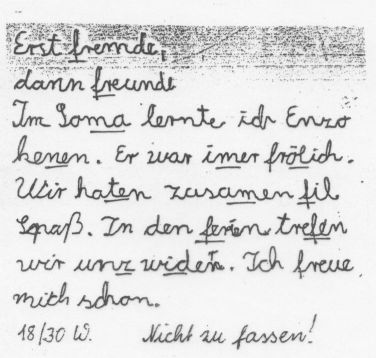 Erst fremde,
dann freunde
Im Soma lernte ich Enzo
kenen. Er war imer frölich.
Wir haten zusamen fil
Spaß. In den ferien trefen
wir unz wider. Ich freue
mich schon.
18/30 W. Nicht zu fassen!